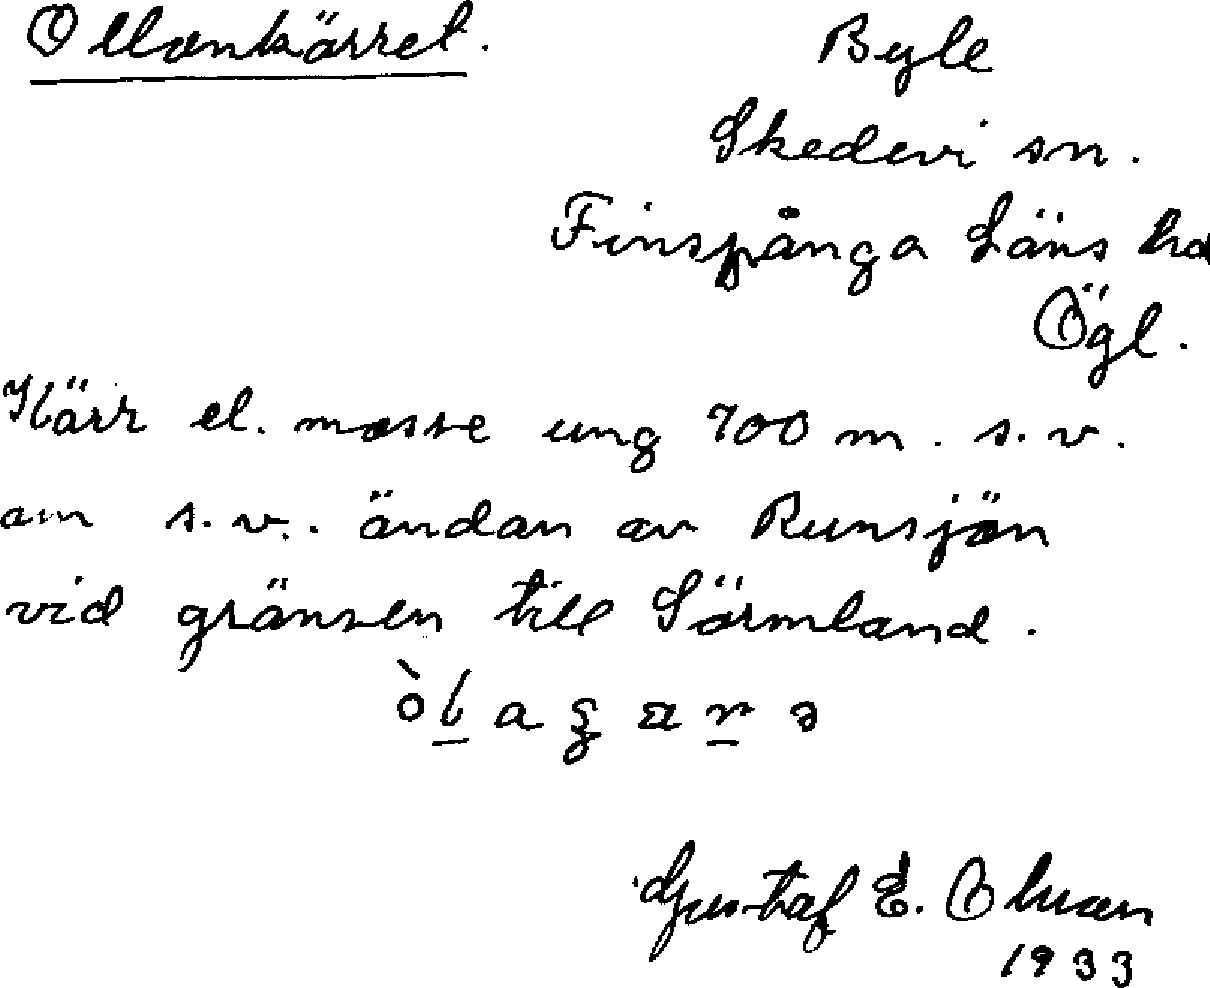 Ollonkärret.
Byle
Skedevi sn.
Finspånga Läns hd
Ögl.
Kärr el. mosse ung 700 m. s.v.
om s.v. ändan av Runsjön
vid gränsen till Sörmland.
Gustaf E.
1933